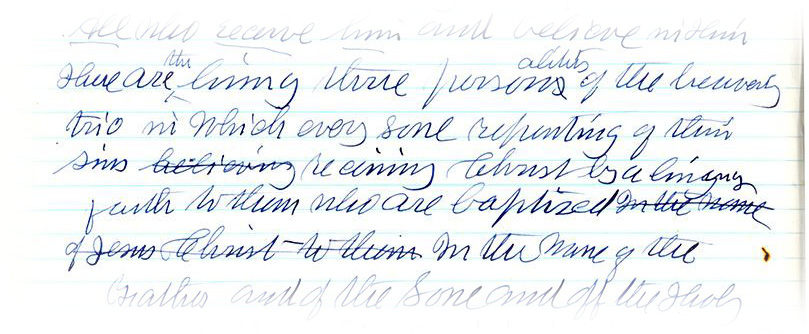 All who receive him and believe in him
there are the living three personalities of the heavenly
trio in which every sone repenting of their
sins believing receiving Christ by a living
faith to them who are baptized in the name
of Jesus Christ to them in the name of the
Father and of the Sone and off the Holy